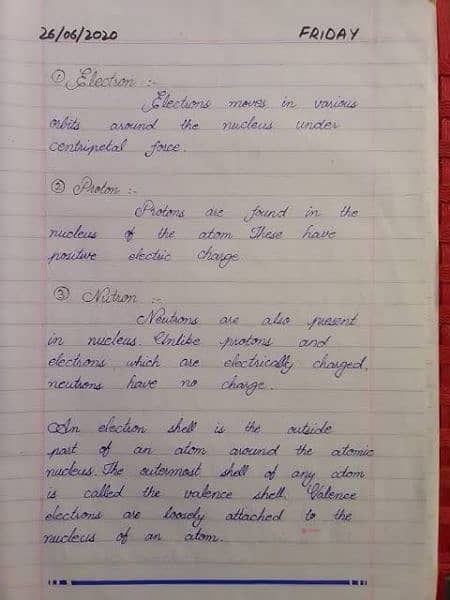 26/06/2020 FRIDAY
① Electron :-
Electrons moves in various
orbits around the nucleus under
centripetal force.
② Proton :-
Protons are found in the
nucleus of the atom These have
positive electric charge
③ Nutron :-
Neutrons are also present
in nucleus. Unlike protons and
electrons, which are electrically charged,
neutrons have no charge.
An electron shell is the outside
part of an atom around the atomic
nucleus. The outermost shell of any atom
is called the valence shell. Valence
electrons are loosely attached to the
nucleus of an atom.